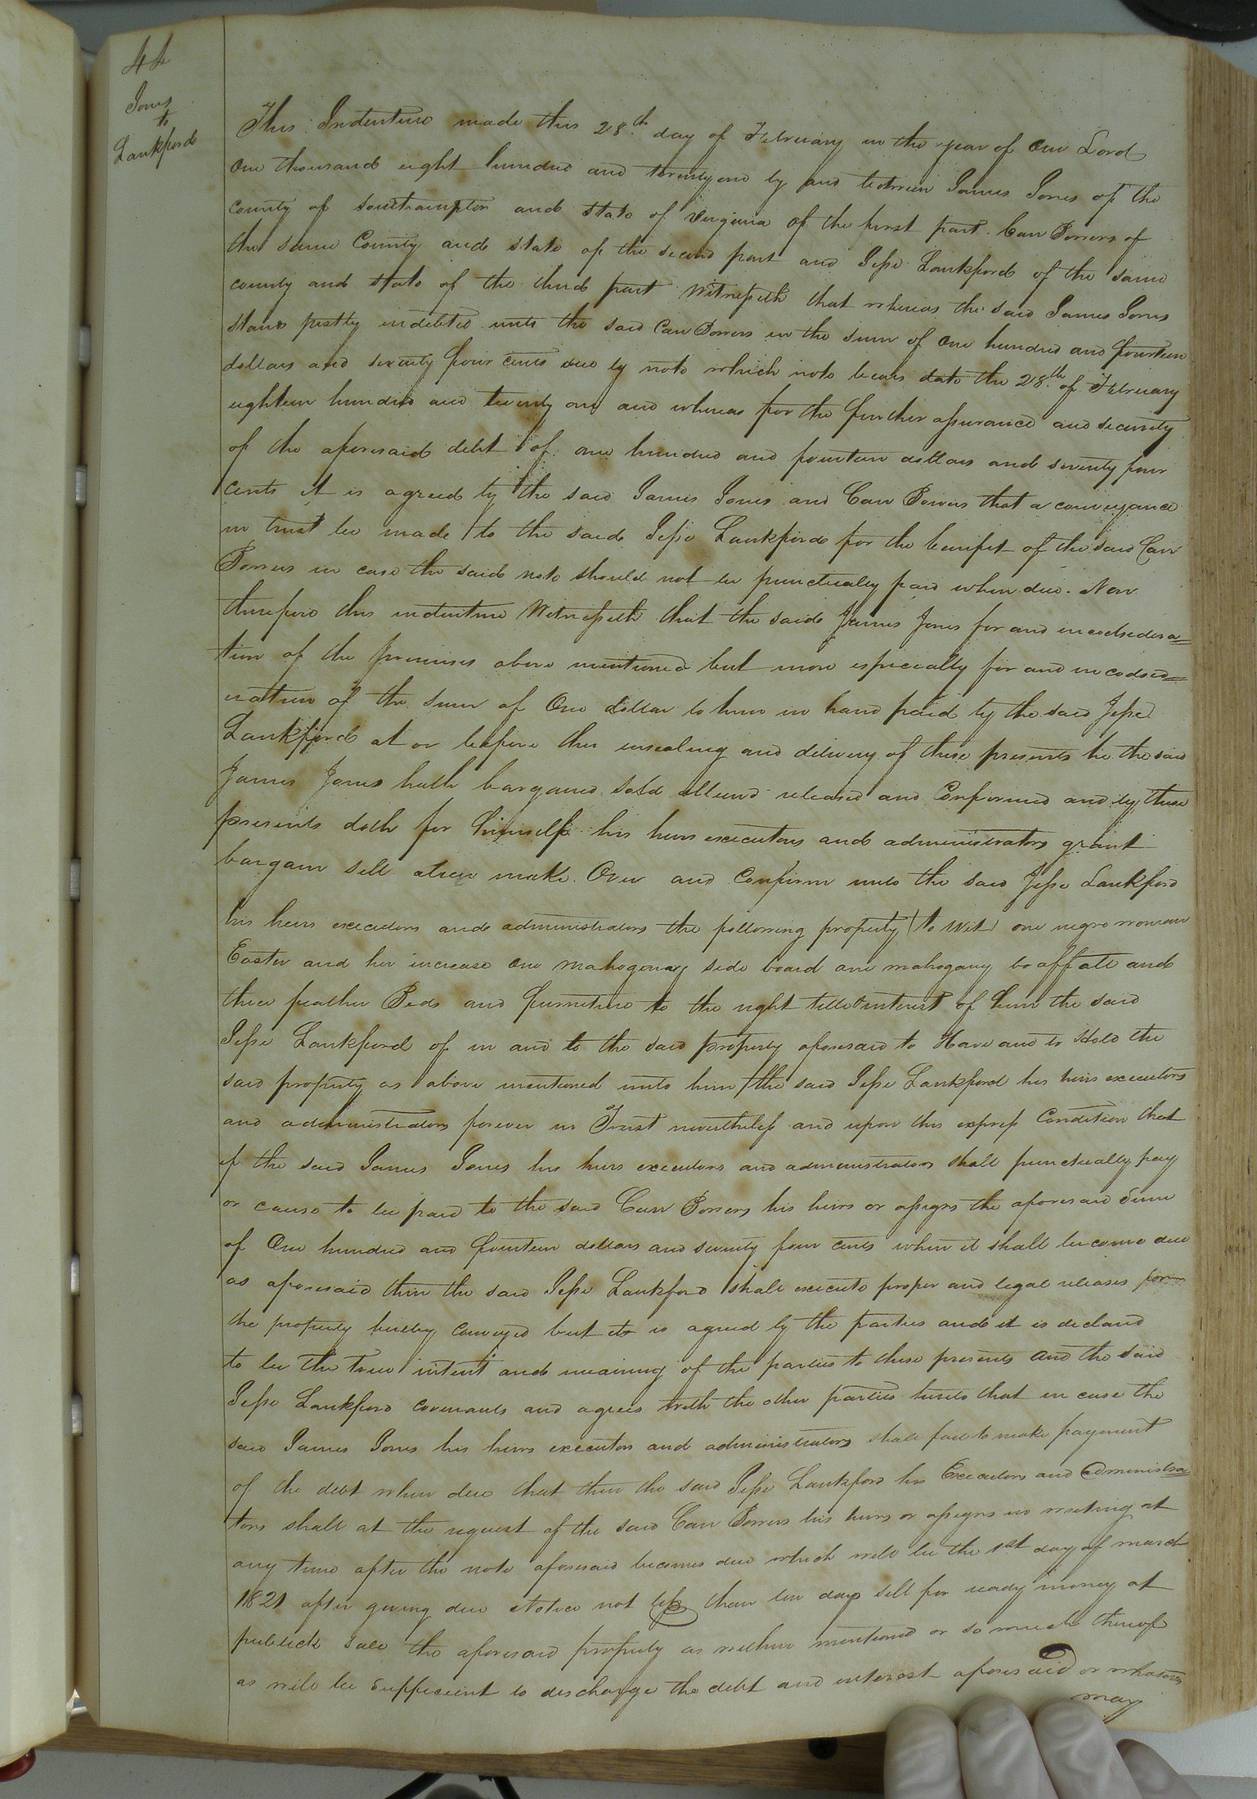 44
Jones
to
Lankford
This Indenture made this 28th day of February in the year of Our Lord
One thousand eight hundred and twenty one by and between James Jones of the
county of Southampton and State of Virginia of the first part. Carr Bowers of
the same County and state of the second part and Jesse Lankford of the same
county and state of the third part Witnesseth that whereas the said James Jones
stands justly indebted unto the said Carr Bowers in the sum of One hundred and fourteen
dollars and seventy four cents due by note which note bears date the 28th of February
eighteen hundred and twenty one and whereas for the further assurance and security
of the aforesaid debt of one hundred and fourteen dollars and seventy four
cents it is agreed by the said James Jones and Carr Bowers that a conveyance
in trust be made to the said Jesse Lankford for the benefit of the said Carr
Bowers in case the said note should not be punctually paid when due. Now
therefore this indenture Witnesseth that the said James Jones for and in considera=
tion of the premises above mentioned but more especially for and in
eration of the sum of One dollar to him in hand paid by the said Jesse
Lankford at or before the ensealing and delivery of these presents he the said
James Jones hath bargained sold released and Confirmed and by these
presents doth for himself his heirs executors and administrators grant
bargain sell alien make Over and Confirm unto the said Jesse Lankford
his heirs executors and administrators the following property (to wit) one negro woman
Easter and her increase One mahogany side board one mahogany and
three feather Beds and furniture to the right title & interest of him the said
Jesse Lankford of in and to the said property aforesaid to Have and to Hold the
said property as above mentioned unto him the said Jesse Lankford his heirs executors
and administrators forever in Trust nevertheless and upon this express Condition that
if the said James Jones his heirs executors and administrators shall punctually pay
or cause to be paid to the said Carr Bowers his heirs or assigns the aforesaid Sum
of One hundred and fourteen dollars and seventy four cents when it shall become due
as aforesaid then the said Jesse Lankford shall execute proper and legal releases for
the property hereby conveyed but it is agreed by the parties and it is declared
to be the true intent and meaning of the parties to these presents and the said
Jesse Lankford covenants and agrees with the other parties hereto that in case the
said James Jones his heirs executors and administrators shall fail to make payment
of the debt when due that then the said Jesse Lankford his Executors and Administra
tors shall at the request of the said Carr Bowers his heirs or assigns in writing at
any time after the note aforesaid becomes due which will be the 1st day of march
1821 after giving due Notice not less than ten days sell for ready money at
publick sale the aforesaid property as within mentioned or so much thereof
as will be Sufficient to discharge the debt and interest aforesaid or whatever
may